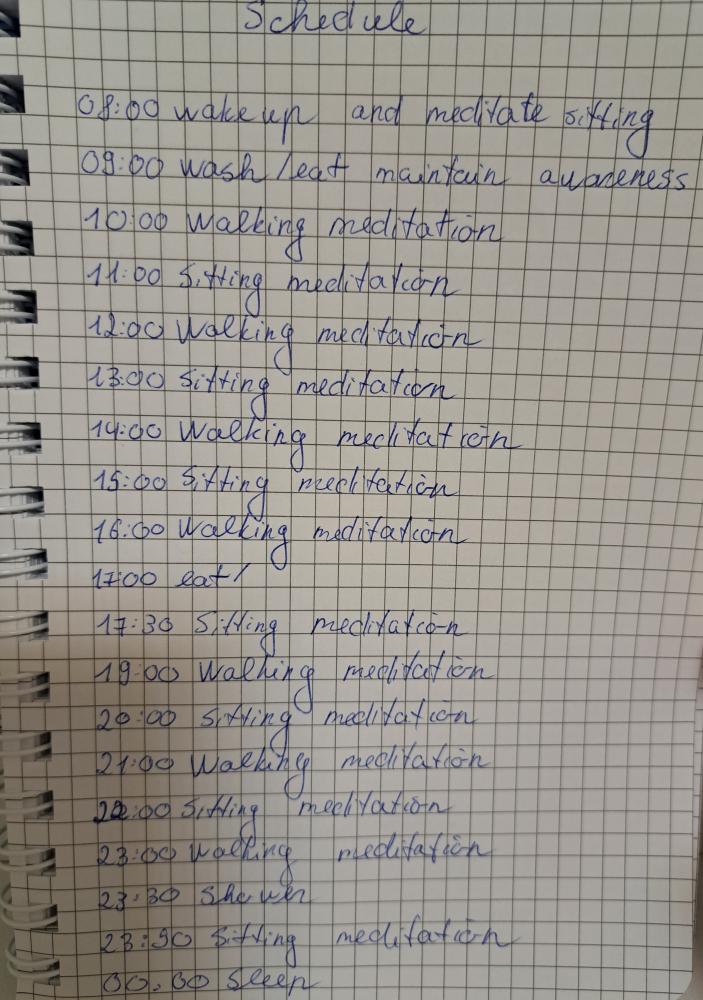 Schedule
08:00 wake up and meditate sitting
09:00 wash/eat maintain awareness
10:00 Walking meditation
11:00 Sitting meditation
12:00 Walking meditation
13:00 Sitting meditation
14:00 Walking meditation
15:00 Sitting meditation
16:00 Walking meditation
17:00 eat/
17:30 Sitting meditation
19:00 Walking meditation
20:00 Sitting meditation
21:00 Walking meditation
22:00 Sitting meditation
23:00 Walking meditation
23:30 Shower
23:90 Sitting meditation
00.00 Sleep